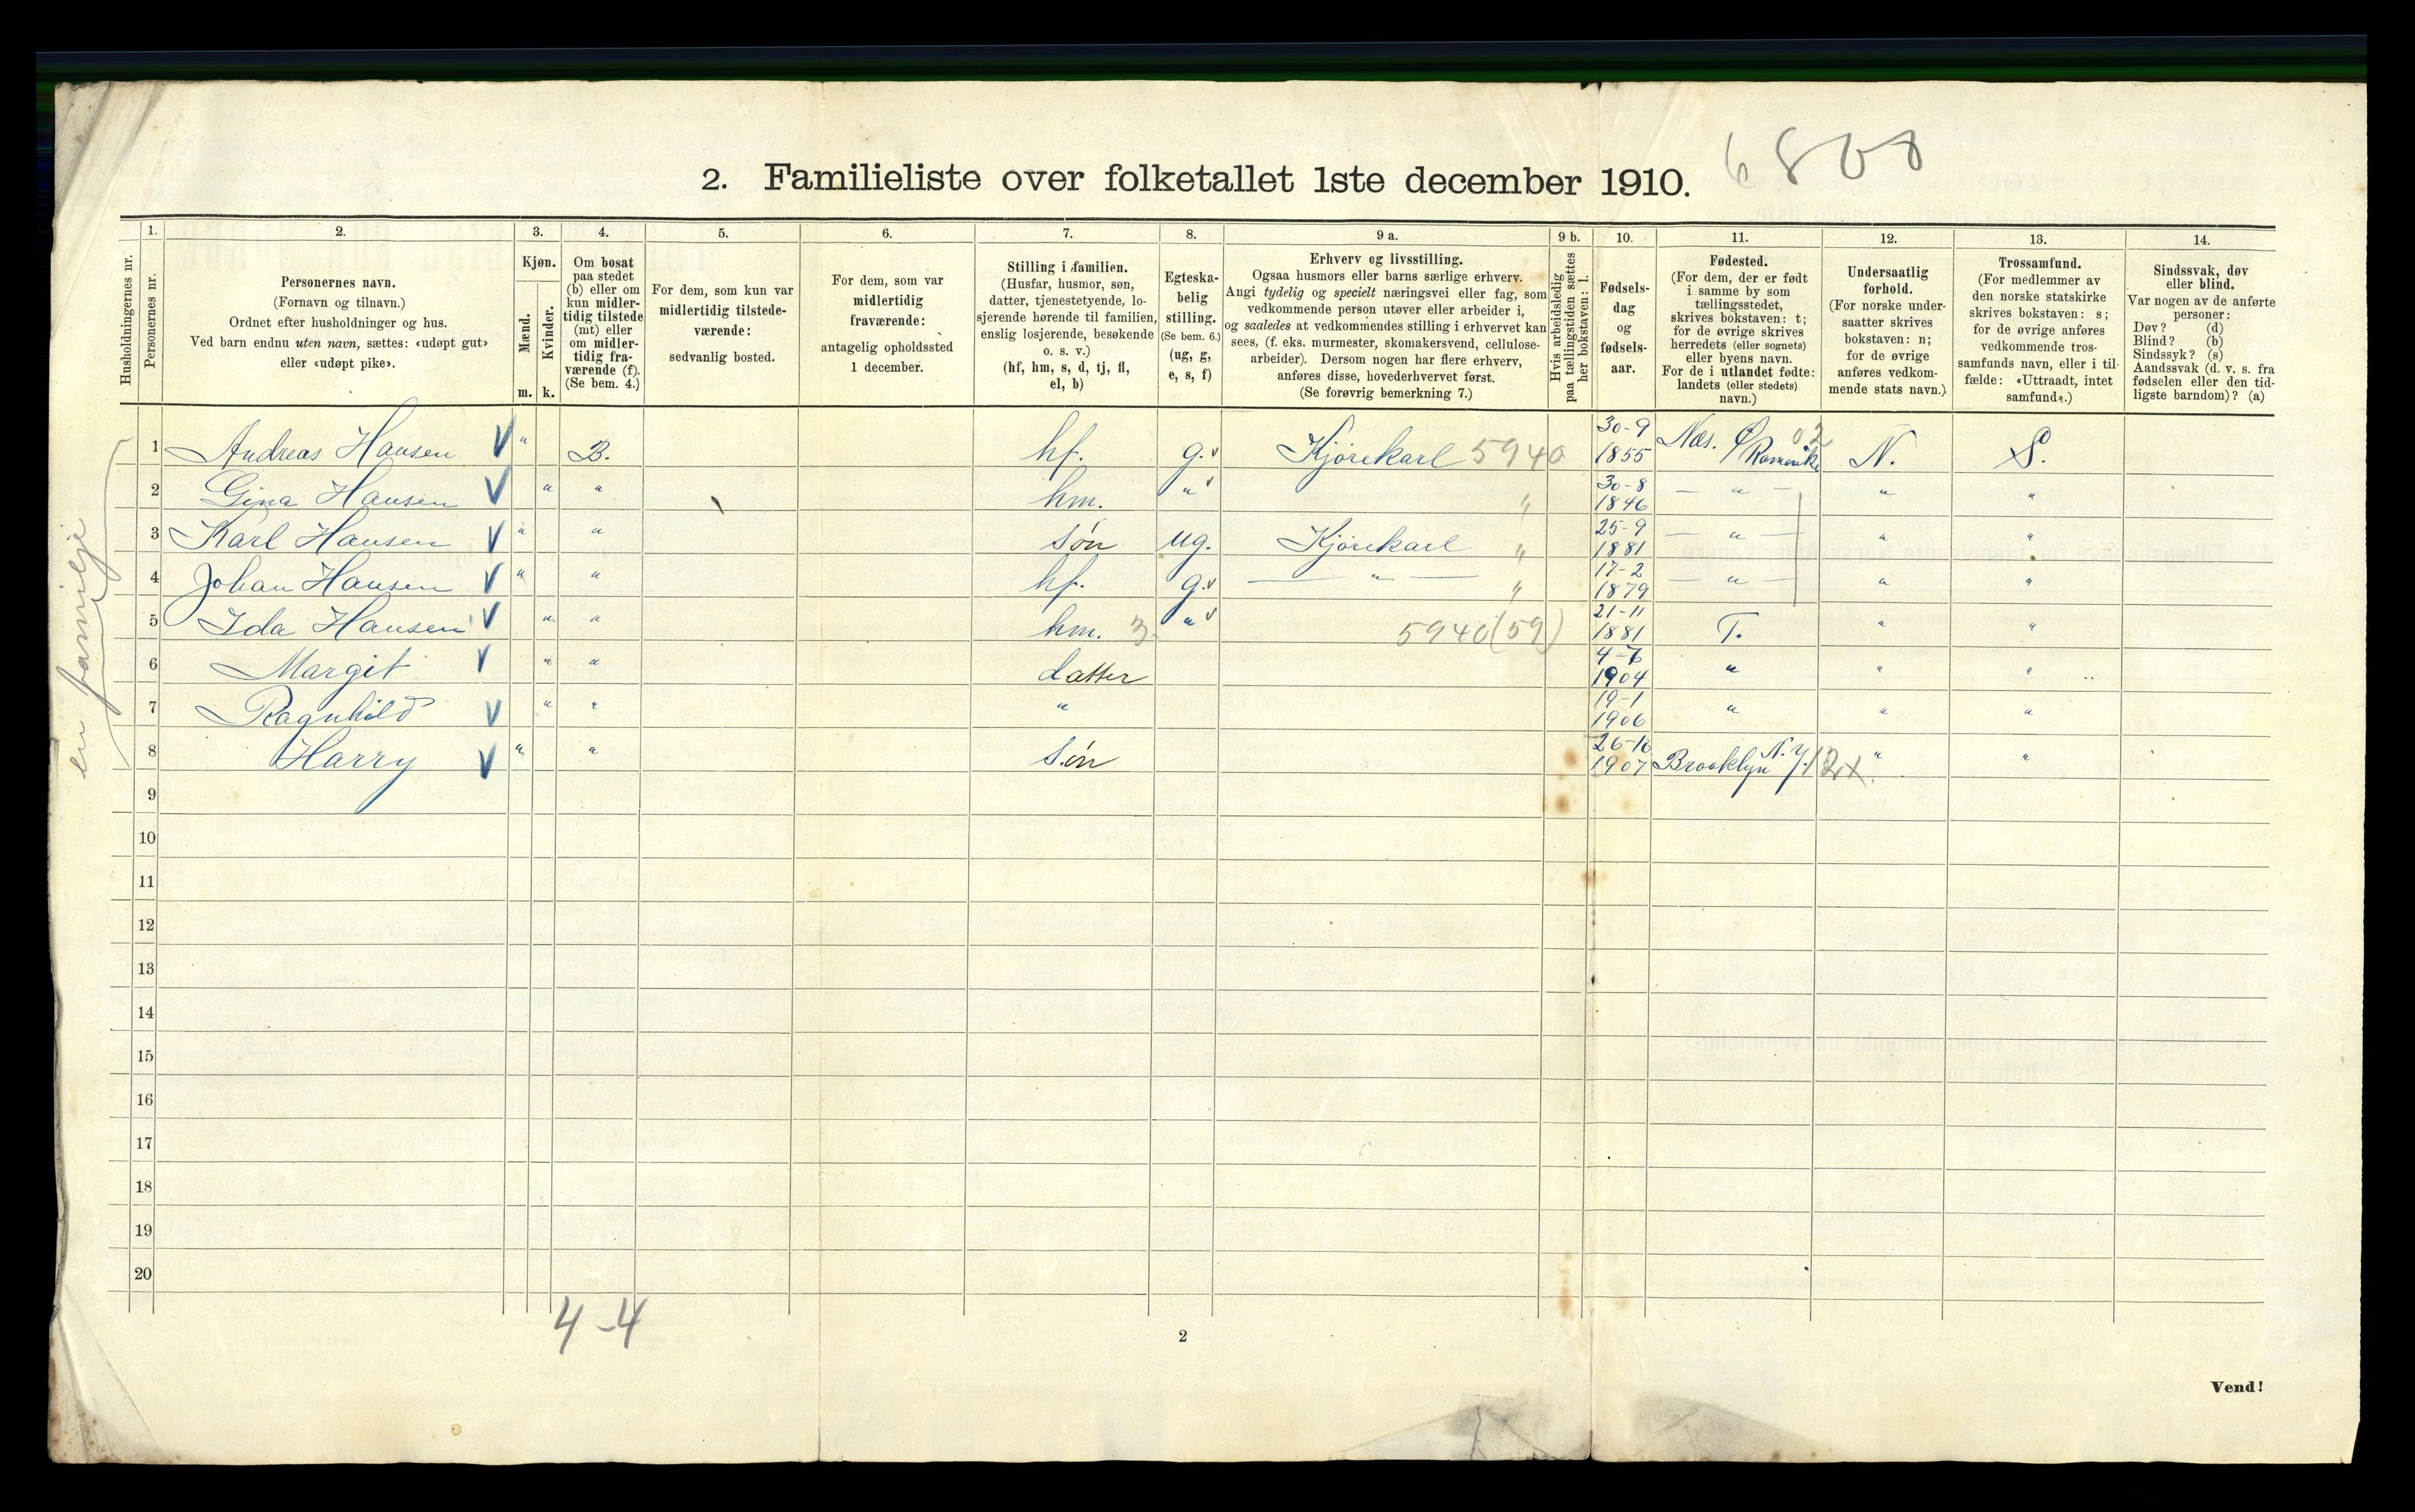 6808
2. Familieliste over folketallet 1ste december 1910.
Husholdningernes nr.
1.
Personernes nr.
2.
Personernes navn.
(Fornavn og tilnavn.)
Ordnet efter husholdninger og hus.
Ved barn endnu uten navn, sættes: «udøpt gut»
eller «udøpt pike».
3.
Kjøn.
Mænd.
m.
Kvinder.
k.
4.
Om bosat
paa stedet
(b) eller om
kun midler-
tidig tilstede
(mt) eller
om midler-
tidig fra-
værende (f).
(Se bem. 4.)
5.
For dem, som kun var
midlertidig tilstede-
værende:
sedvanlig bosted.
6.
For dem, som var
midlertidig
fraværende:
antagelig opholdssted
1 december.
7.
Stilling i familien.
(Husfar, husmor, søn,
datter, tjenestetyende, lo-
sjerende hørende til familien,
enslig losjerende, besøkende
o. s. v.)
(hf, hm, s, d, tj, fl,
el, b)
8.
Egteska-
belig
stilling.
(Se bem. 6.)
(ug, g,
e, s, f)
9 a.
Erhverv og livsstilling.
Ogsaa husmors eller barns særlige erhverv.
Angi tydelig og specielt næringsvei eller fag, som
vedkommende person utøver eller arbeider i,
og saaledes at vedkommendes stilling i erhvervet kan
sees, (f. eks. murmester, skomakersvend, cellulose-
arbeider). Dersom nogen har flere erhverv,
anføres disse, hovederhvervet først.
(Se forøvrig bemerkning 7.)
9 b.
Hvis arbeidsledig
paa tællingstiden sættes
her bokstaven: l.
10.
Fødsels-
dag
og
fødsels-
aar.
11.
Fødested.
(For dem, der er født
i samme by som
tællingsstedet,
skrives bokstaven: t;
for de øvrige skrives
herredets (eller sognets)
eller byens navn.
For de i utlandet fødte:
landets (eller stedets)
navn.)
12.
Undersaatlig
forhold.
(For norske under-
saatter skrives
bokstaven: n;
for de øvrige
anføres vedkom-
mende stats navn.)
13.
Trossamfund.
(For medlemmer av
den norske statskirke
skrives bokstaven: s;
for de øvrige anføres
vedkommende tros-
samfunds navn, eller i til-
fælde: «Uttraadt, intet
samfund».)
14.
Sindssvak, døv
eller blind.
Var nogen av de anførte
personer:
Døv? (d)
Blind? (b)
Sindssyk? (s)
Aandssvak (d. v. s. fra
fødselen eller den tid-
ligste barndom)? (a)
en familje
1 Andreas Hansen V " B. hf. g. v Kjørekarl 5940 30-9 1855 Næs. Romerike 02 N. S.
2 Gina Hansen V " " hm. " v " 30-8 1846 — " — " "
3 Karl Hansen V " " søn ug. Kjørekarl " 25-9 1881 — " — " "
4 Johan Hansen V " " hf. g. v — " — " 17-2 1879 — " — " "
5 Ida Hansen V " " hm. 3 " v 5940 (59) 21-11 1881 T. " "
6 Margit V " " datter 1904 " " "
7 Ragnhild V " " " 19-1 1906 " " "
8 Harry V " " søn 1907 Brooklyn N. Y. " "
9
10
11
12
13
14
15
16
17
18
19
20
4-4
2
Vend!